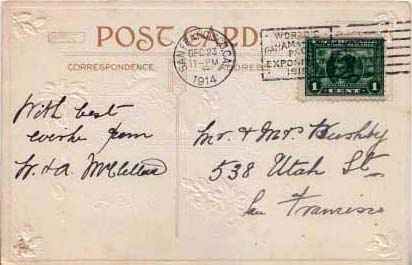 POST CARD
CORRESPONDENCE
SAN FRANCISCO, CAL.
DEC 23
11-PM
1914
WORLD'S
PANAMA-PACIFIC
EXPOSITION
1915
1 CENT 1
With best
wishes from
W. & A. McClelland
Mr. & Mrs Bushby
538 Utah St.
San Francisco